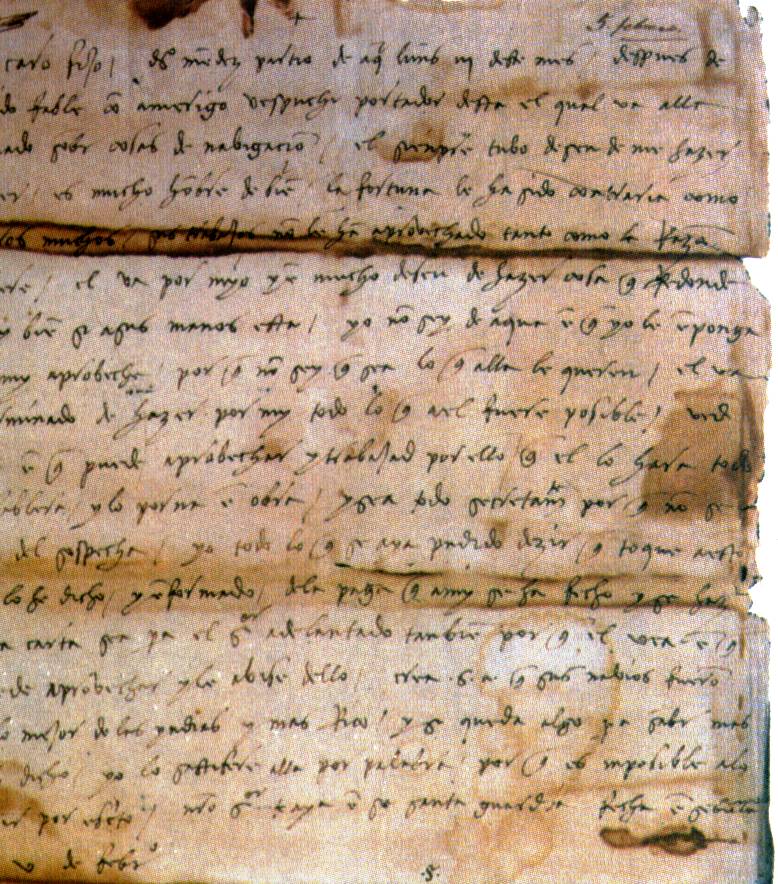 5 febrero
caro fijo / dº mēdez partio de aq̄ lunes iij deste mes / despues de
do fable cō amerigo vespuchi portador desta el qual va alla
ado sobr cosas de nabigaciō / el sienpre tubo deseo de me hazer
er / es mucho hōbre de biē / la fortuna le ha sido contraria como
los muchos / sus trabajos nō le hā aprobechado tanto como la razō
ere / el va por myo y ē mucho deseo de hazer cosa q̄ redonde
y biē si a sus manos esta / yo nō sey de aqua ē q̄ yo le ēponga
my aprobeche / por q̄ nō sey q̄ sea lo q̄ alla le quieren / el va
rminado de hazer por my todo lo q̄ a el fuere posible / ved
ē q̄ puede aprobechar y trabajad por ello q̄ el lo hara todo
ablera / y lo porna ē obra / y sea todo secretamte por q̄ nō se
del sospecha / yo todo lo q̄ se aya podido dezir q̄ toque a esto
lo he dicho / y ēformado / dela paga q̄ a my se ha fecho y se haz
a carta sea pa el Sor adelantado tanbiē por q̄ el vea ē q̄
ede aprobechar y le abise dello / crea s. a. q̄ sus nabios fuerō
o mejor de las yndias y mas rico / y si queda algo pa sabr mas
dicho / yo lo satisfere alla por palabra / por q̄ es ynposible a lo
ir por escrito / nrō Sor t aya ē su santa guardia fecha ē sebilla
v de febro
.S.